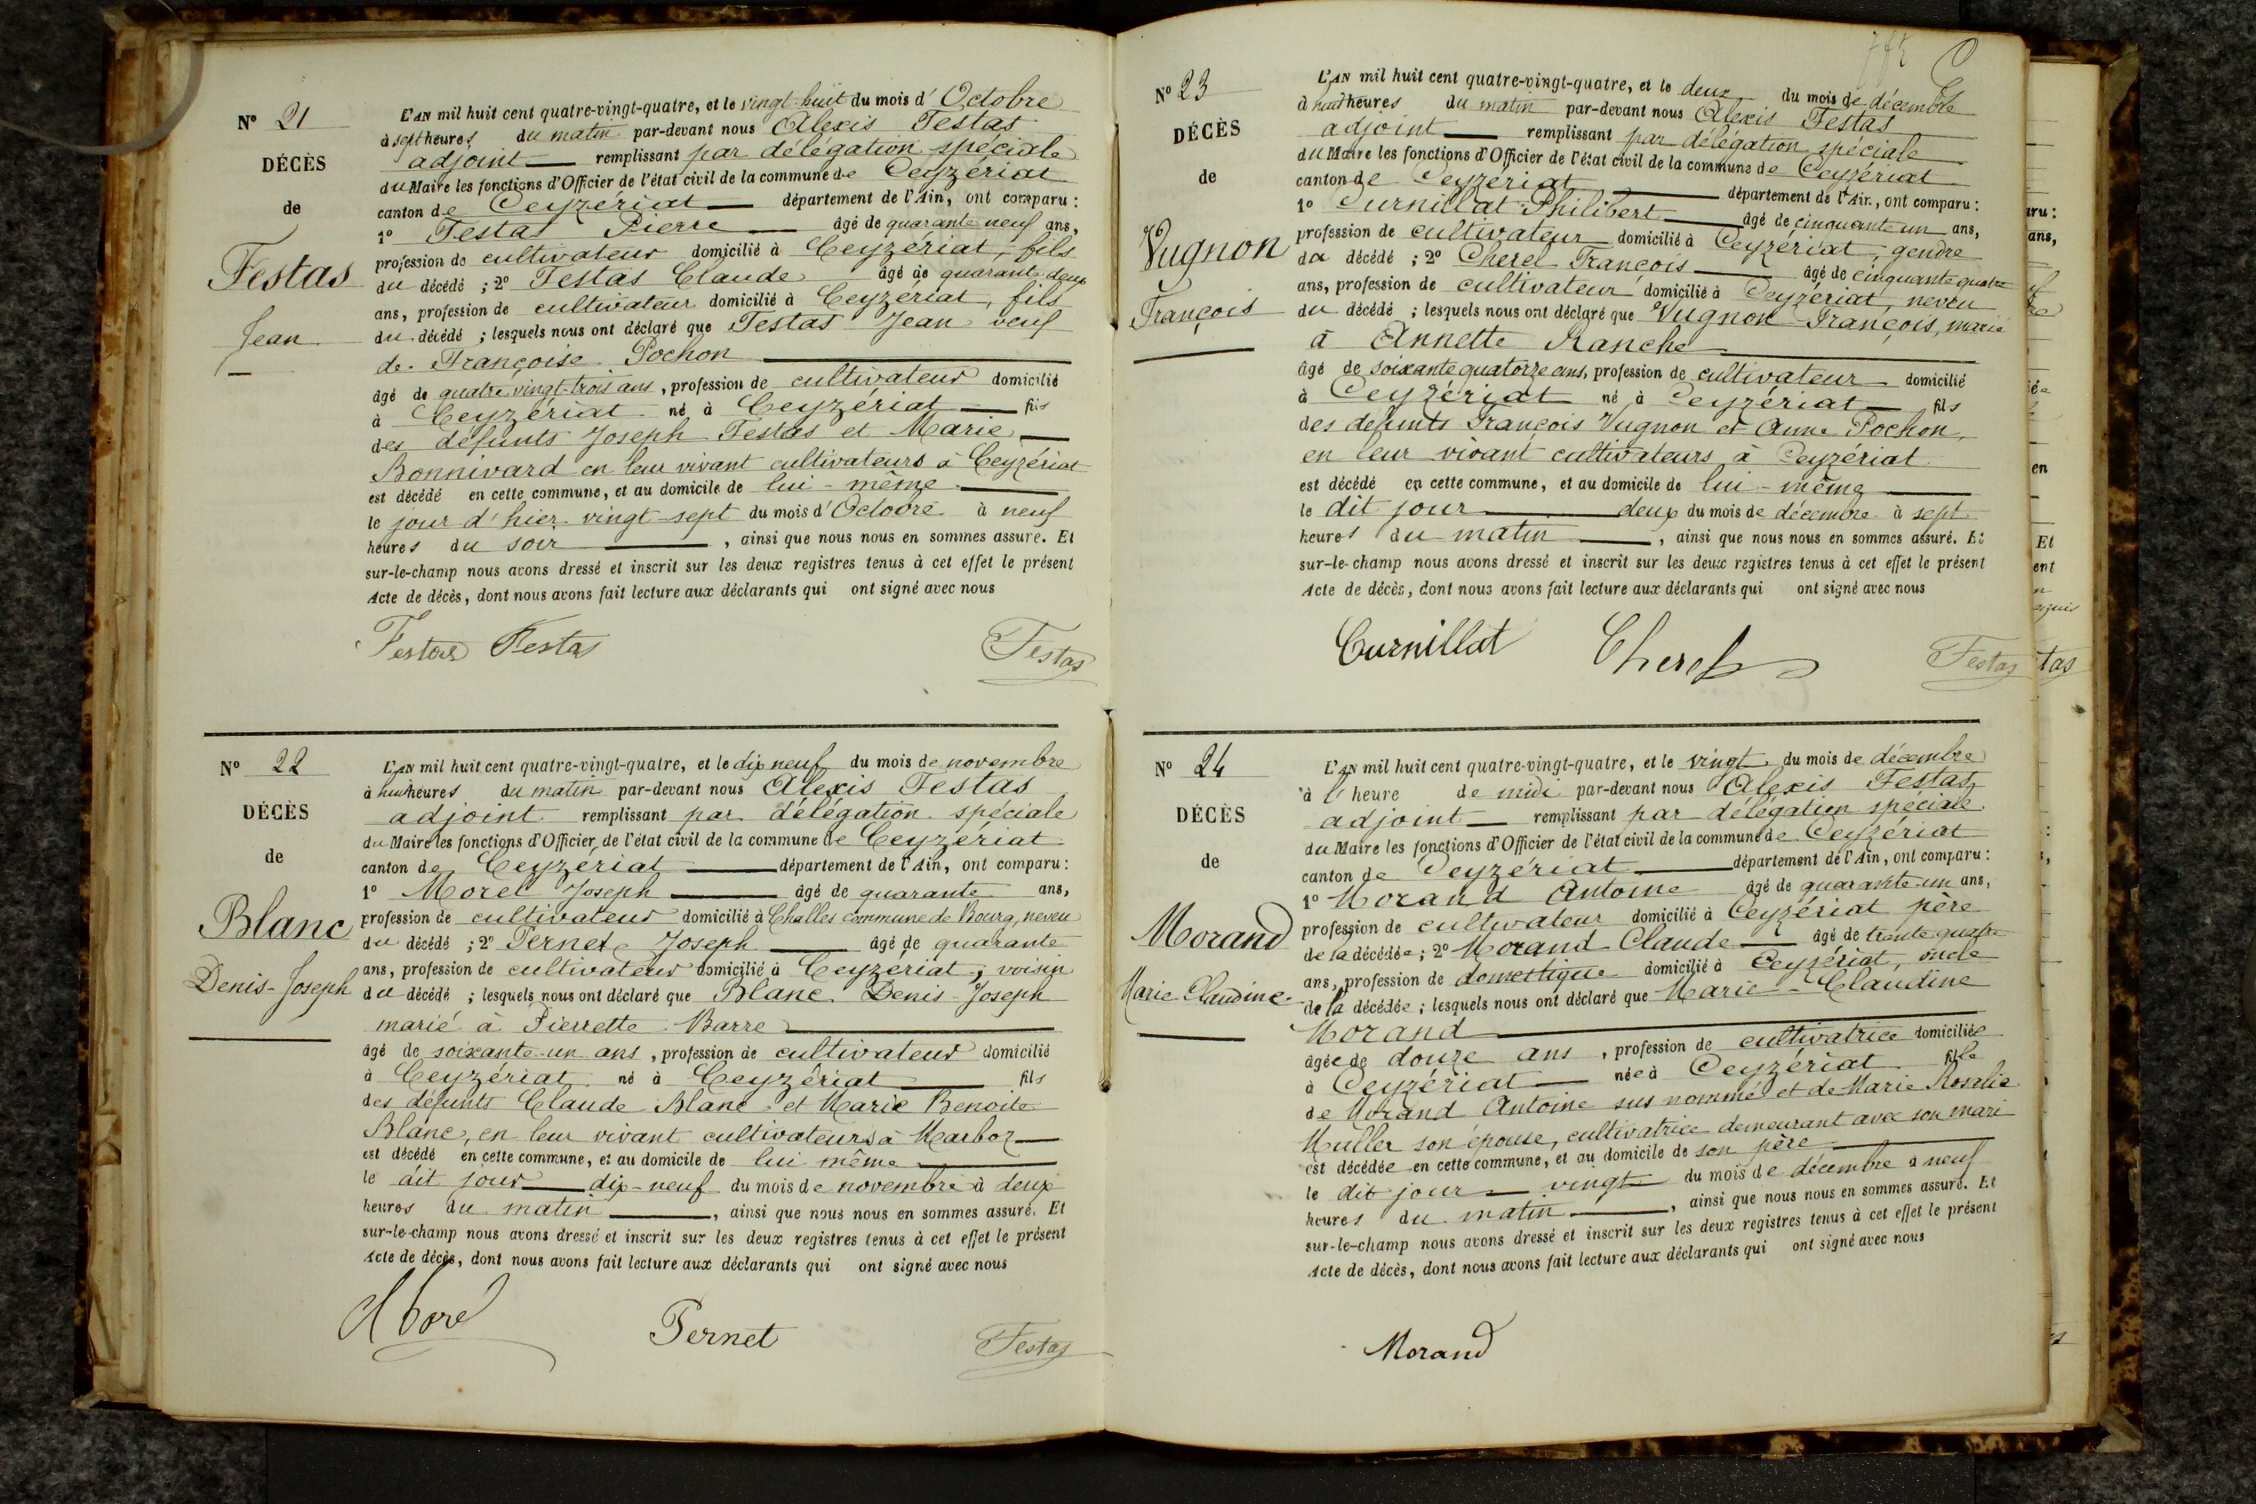 N° 21
DÉCÈS
de
Festas
Jean
L'AN mil huit cent quatre-vingt-quatre, et le vingt-huit du mois d'Octobre
à sept heures du matin par-devant nous Alexis Festas
adjoint remplissant par délégation spéciale
du Maire les fonctions d'Officier de l'état civil de la commune de Ceyzériat
canton de Ceyzériat département de l'Ain, ont comparu :
1° Festas Pierre âgé de quarante neuf ans,
profession de cultivateur domicilié à Ceyzériat, fils
du décédé ; 2° Festas Claude âgé de quarante deux
ans, profession de cultivateur domicilié à Ceyzériat, fils
du décédé ; lesquels nous ont déclaré que Festas Jean veuf
de Françoise Pochon
âgé de quatre vingt-trois ans, profession de cultivateur domicilié
à Ceyzériat né à Ceyzériat fils
des défunts Joseph Festas et Marie
Bonnivard en leur vivant cultivateurs à Ceyzériat
est décédé en cette commune, et au domicile de lui-même
le jour d'hier vingt-sept du mois d'Octobre à neuf
heures du soir , ainsi que nous nous en sommes assuré. Et
sur-le-champ nous avons dressé et inscrit sur les deux registres tenus à cet effet le présent
Acte de décès, dont nous avons fait lecture aux déclarants qui ont signé avec nous
Festas Festas Festas
N° 22
DÉCÈS
de
Blanc
Denis-Joseph
L'AN mil huit cent quatre-vingt-quatre, et le dix neuf du mois de novembre
à huit heures du matin par-devant nous Alexis Festas
adjoint remplissant par délégation spéciale
du Maire les fonctions d'Officier de l'état civil de la commune de Ceyzériat
canton de Ceyzériat département de l'Ain, ont comparu :
1° Morel Joseph âgé de quarante ans,
profession de cultivateur domicilié à Challes commune de Bourg, neveu
du décédé ; 2° Pernet Joseph âgé de quarante
ans, profession de cultivateur domicilié à Ceyzériat, voisin
du décédé ; lesquels nous ont déclaré que Blanc Denis-Joseph
marié à Pierrette Barre
âgé de soixante-un ans, profession de cultivateur domicilié
à Ceyzériat né à Ceyzériat fils
des défunts Claude Blanc et Marie Benoite
Blanc, en leur vivant cultivateurs à Marboz
est décédé en cette commune, et au domicile de lui même
le dit jour dix-neuf du mois de novembre à deux
heures du matin , ainsi que nous nous en sommes assuré. Et
sur-le-champ nous avons dressé et inscrit sur les deux registres tenus à cet effet le présent
Acte de décès, dont nous avons fait lecture aux déclarants qui ont signé avec nous
Pernet Festas
N° 23
DÉCÈS
de
Vugnon
François
L'AN mil huit cent quatre-vingt-quatre, et le deux du mois de décembre
à huit heures du matin par-devant nous Alexis Festas
adjoint remplissant par délégation spéciale
du Maire les fonctions d'Officier de l'état civil de la commune de Ceyzériat
canton de Ceyzériat département de l'Ain, ont comparu :
1° Curnillat Philibert âgé de cinquante un ans,
profession de cultivateur domicilié à Ceyzériat, gendre
du décédé ; 2° Cherel François âgé de cinquante quatre
ans, profession de cultivateur domicilié à Ceyzériat, neveu
du décédé ; lesquels nous ont déclaré que Vugnon François, marié
à Annette Ranche
âgé de soixante quatorze ans, profession de cultivateur domicilié
à Ceyzériat né à Ceyzériat fils
des défunts François Vugnon et Anne Pochon,
en leur vivant cultivateurs à Ceyzériat
est décédé en cette commune, et au domicile de lui-même
le dit jour deux du mois de décembre à sept
heures du matin , ainsi que nous nous en sommes assuré. Et
sur-le-champ nous avons dressé et inscrit sur les deux registres tenus à cet effet le présent
Acte de décès, dont nous avons fait lecture aux déclarants qui ont signé avec nous
Curnillat Cherel Festas
N° 24
DÉCÈS
de
Morand
Marie Claudine
L'AN mil huit cent quatre-vingt-quatre, et le vingt du mois de décembre
à l'heure de midi par-devant nous Alexis Festas,
adjoint remplissant par délégation spéciale
du Maire les fonctions d'Officier de l'état civil de la commune de Ceyzériat
canton de Ceyzériat département de l'Ain, ont comparu :
1° Morand Antoine âgé de quarante un ans,
profession de cultivateur domicilié à Ceyzériat père
de la décédée ; 2° Morand Claude âgé de trente quatre
ans, profession de domestique domicilié à Ceyzériat, oncle
de la décédée ; lesquels nous ont déclaré que Marie-Claudine
Morand
âgée de douze ans , profession de cultivatrice domiciliée
à Ceyzériat née à Ceyzériat fille
de Morand Antoine sus nommé et de Marie Rosalie
Muller son épouse, cultivatrice demeurant avec son mari
est décédée en cette commune, et au domicile de son père
le dit jour vingt du mois de décembre à neuf
heures du matin , ainsi que nous nous en sommes assuré. Et
sur-le-champ nous avons dressé et inscrit sur les deux registres tenus à cet effet le présent
Acte de décès, dont nous avons fait lecture aux déclarants qui ont signé avec nous
Morand